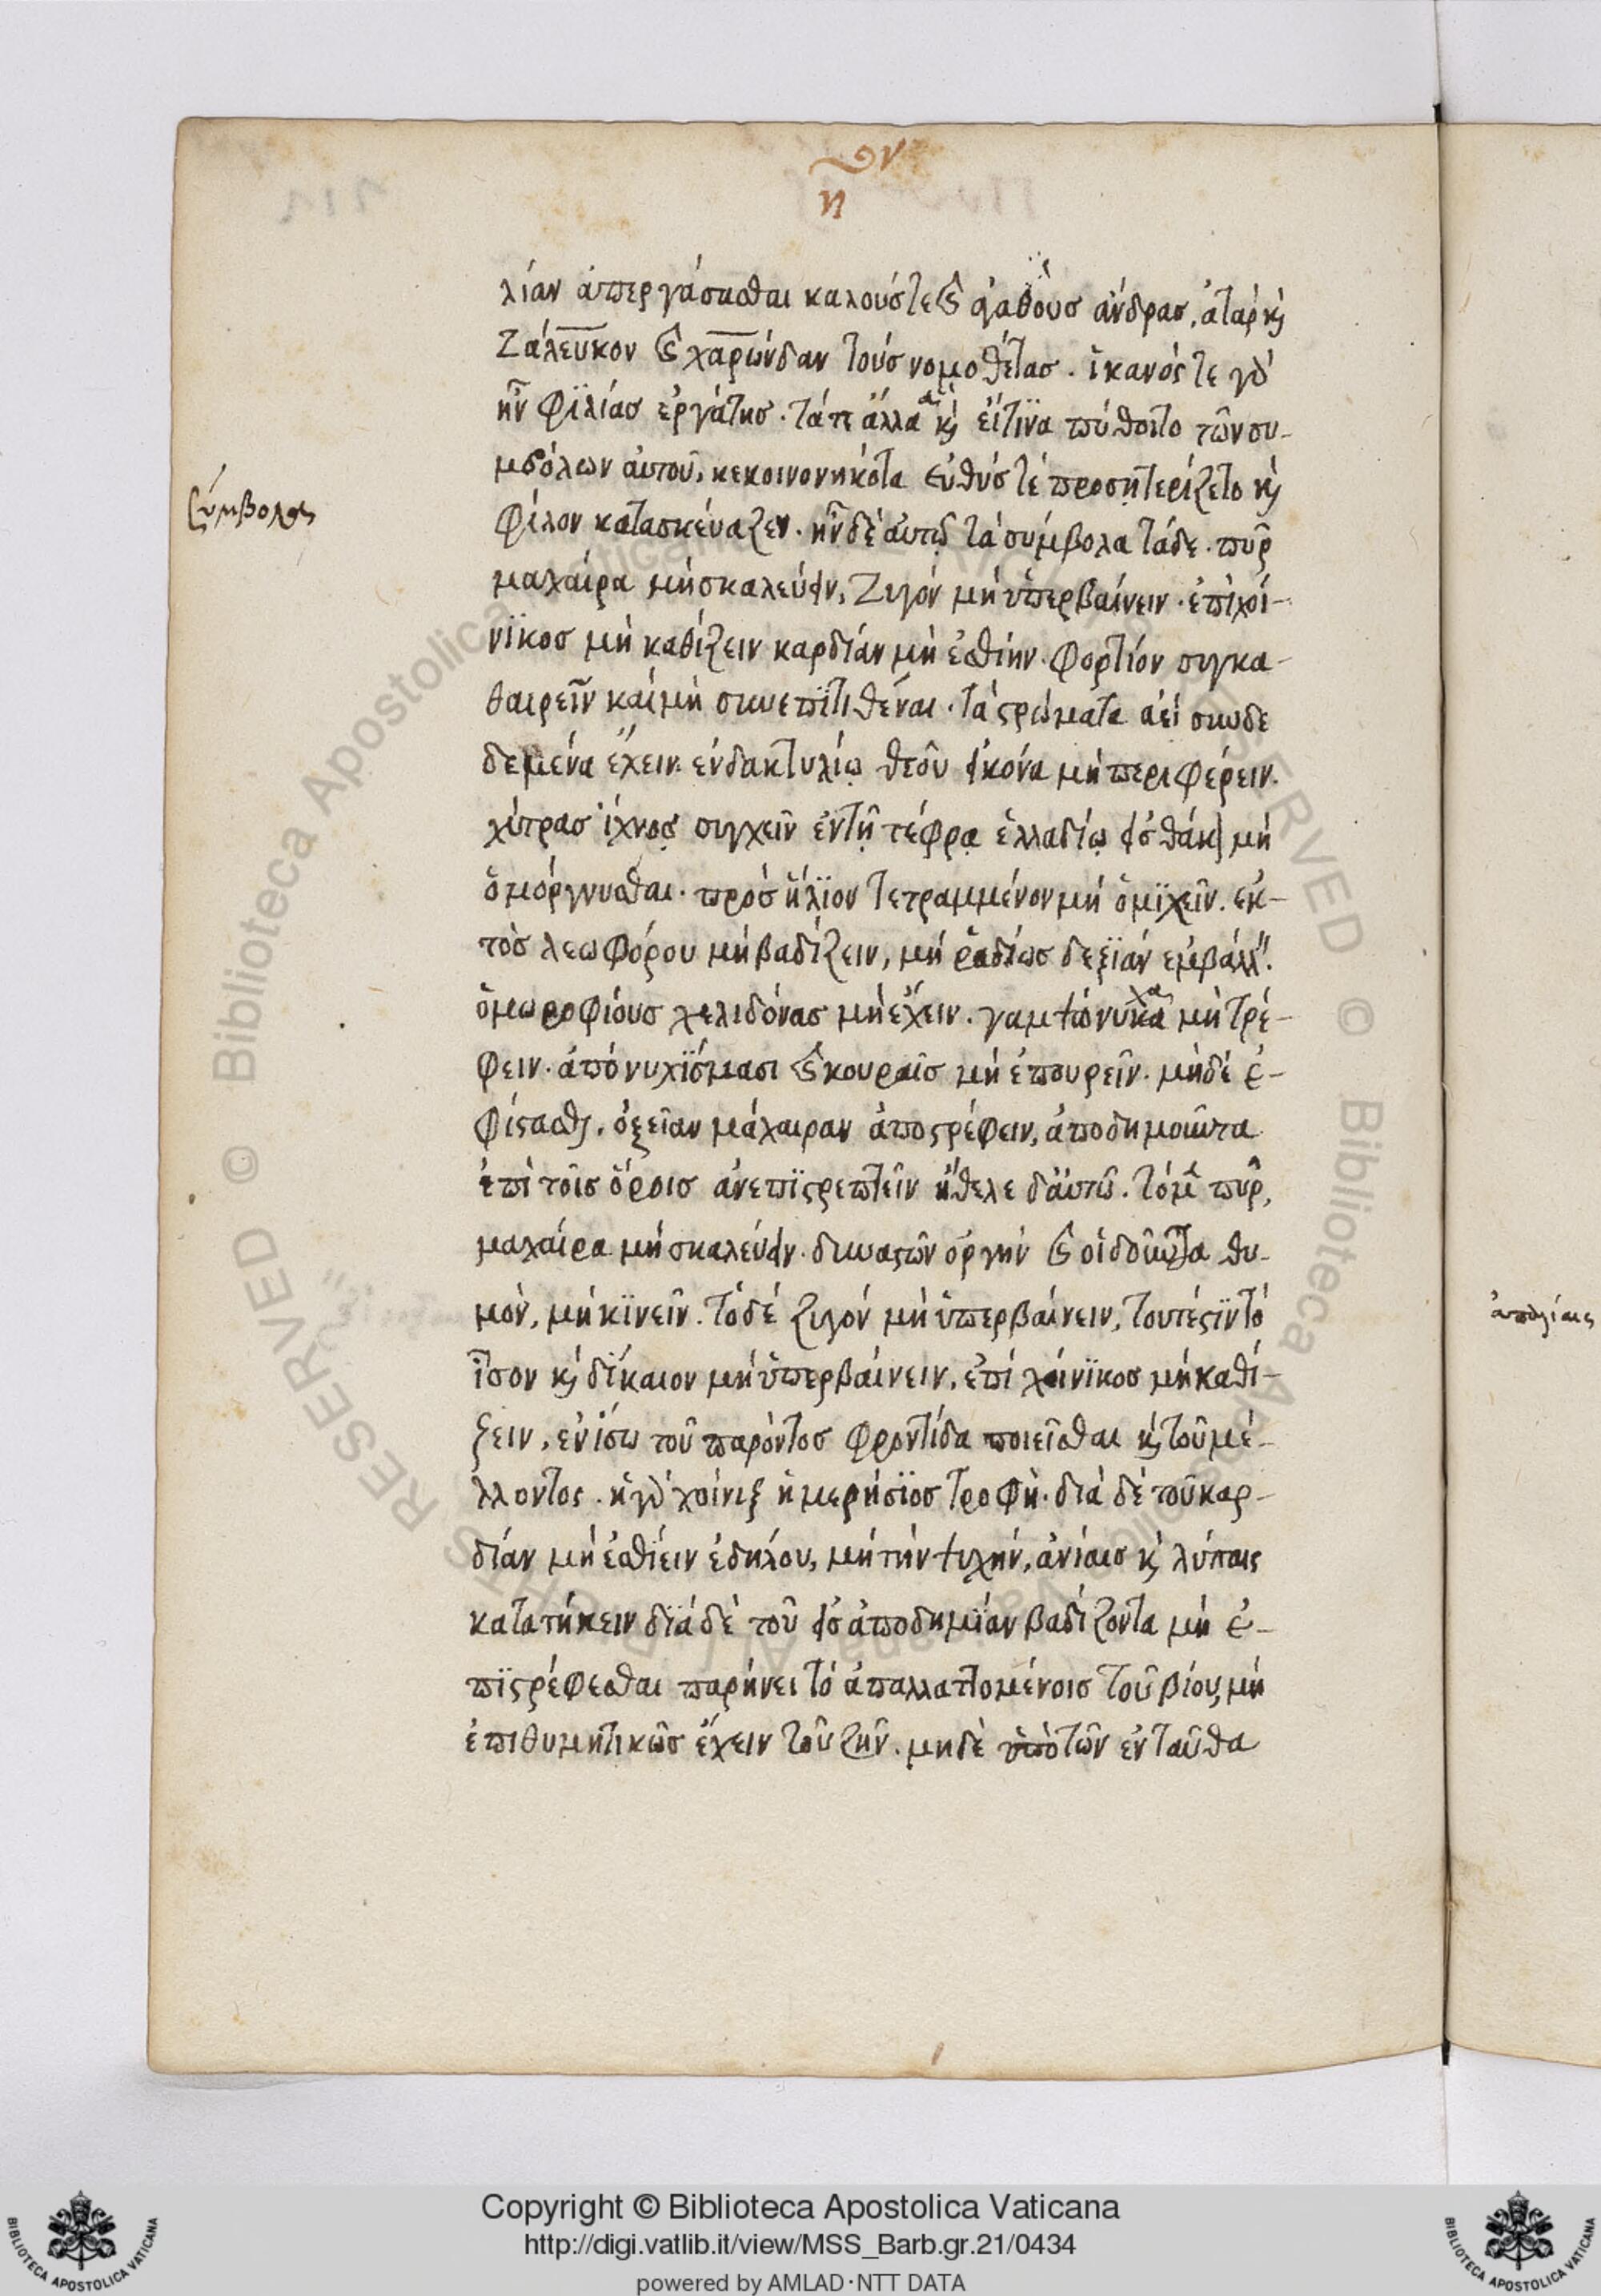 λίαν ἀπεργάσασθαι καλούς τε καὶ ἀγαθοὺς ἄνδρας, ἀτὰρ καὶ
Ζάλευκον καὶ χαρώνδαν τοὺς νομοθέτας. ἱκανός τε γὰρ
ἦν φϊλίας ἐργάτης. τά τε ἄλλα καὶ εἴ τϊνα πύθοιτο τῶν συ-
μβόλων αὐτοῦ, κεκοινονηκότα εὐθύς τὲ προσητερίζετο καὶ
Σύμβολα
φίλον κατασκέυαζεν. ἦν δὲ αὐτῷ τὰ σύμβολα τάδε. πῦρ
μαχαίρα μὴ σκαλεύειν, Ζυγόν μὴ ὑπερβαίνειν. ἐπὶ χοί-
νϊκος μὴ καθίζειν καρδίαν μὴ ἐσθίην. φορτίον συγκα-
θαιρεῖν καί μὴ συνεπϊτιθέναι. τὰ στρώματα ἀεὶ συνδε
δεμένα ἔχειν. ἐν δακτυλίῳ θεοῦ εἰκόνα μὴ περιφέρειν.
χύτρας ἴχνος συγχεῖν ἐν τῇ τέφρᾳ ἑλλαδίῳ εἰς θάκ μὴ
ὀμόργνυσθαι. πρὸς ἥλϊον τετραμμένον μὴ ὀμϊχεῖν. ἐκ-
τὸς λεωφόρου μὴ βαδίζειν, μὴ ῥαδίως δεξϊάν ἐμβάλλειν.
ὁμωροφίους χελιδόνας μὴ ἔχειν. γαμψώνυχα μὴ τρέ-
φειν. ἀπόνυχϊσμασι καὶ κουραῖς μὴ ἐπουρεῖν. μηδὲ ἐ-
φίστασθαι. ὀξεῖαν μάχαιραν ἀποστρέφειν, ἀποδημοῦντα
ἐπὶ τοῖς ὅροις ἀνεπϊστρεπτεῖν ἤθελε δ' ἀυτῶ. τὸ μὲν πῦρ,
μαχαίρα μὴ σκαλεύειν. δυναστῶν ὀργὴν καὶ οἰδοῦντα θυ-
μὸν, μὴ κϊνεῖν. τὸ δὲ ζυγόν μὴ ὑπερβαίνειν, τουτέστϊν τὸ
ἶσον καὶ δίκαιον μὴ ὑπερβαίνειν, ἐπὶ χοίνϊκος μὴ καθί-
ζειν, ἐν ἴσω τοῦ παρόντος φροντίδα ποιεῖσθαι καὶ τοῦ μέ-
λλοντος. ἡ γὰρ χοίνιξ ἡμερήσϊος τροφὴ. διὰ δὲ τοῦ καρ-
δίαν μὴ ἐσθίειν ἐδηλου, μὴ τὴν ψυχήν, ἀνίαις καὶ λύπαις
κατατήκειν δϊὰ δὲ τοῦ εἰς ἀποδημϊαν βαδίζοντα μὴ ἐ-
πϊστρέφεσθαι παρήνει τὸ ἀπαλλαττομένοις τοῦ βίου, μὴ
ἐπιθυμητικῶς ἔχειν τοῦ ζῆν. μηδὲ ὑπὸ τῶν ἐνταῦθα
Copyright © Biblioteca Apostolica Vaticana
http://digi.vatlib.it/view/MSS_Barb.gr.21/0434
powered by AMLAD·NTT DATA